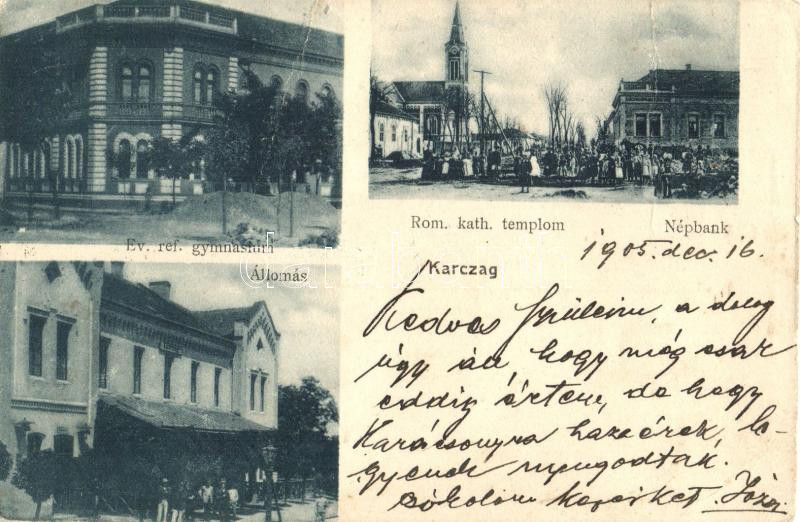 Ev. ref. gymnasium
Állomás
Rom. kath. templom
Népbank
Karczag
1905. dec. 16.
Kedves Szüleim, a dolog
úgy áll, hogy még csak
eddig értem, de hogy
Karácsonyra hazaérek, le-
gyenek nyugodtak.
csókolom kezeiket József